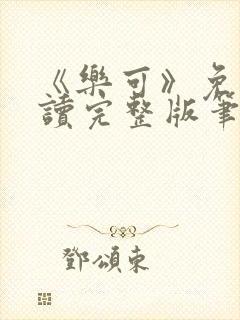 《樂可》免
讀完整版筆
鄧頌東